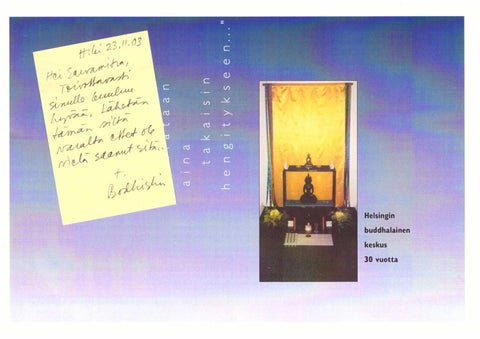 Hki 23.11.03
Hei
Toivottavasti
sinulle kuuluu
hyvää. Lähetän
tämän siltä
varalta ettet ole
vielä saanut sitä..
t.
aina
takaisin
hengitykseen..."
Helsingin
buddhalainen
keskus
30 vuotta